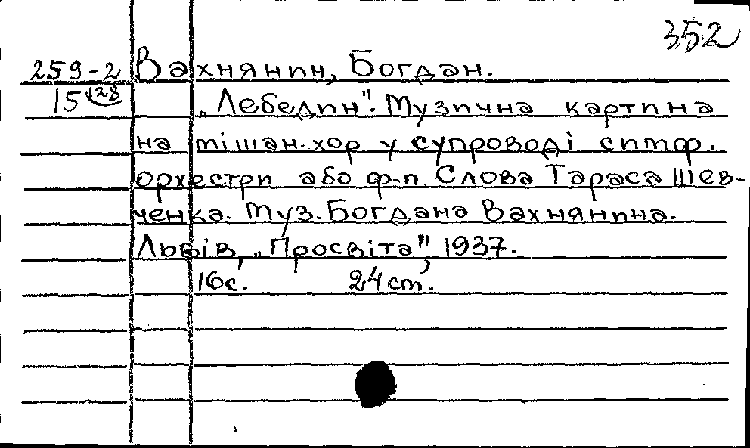 352
259-2 Вахнянин, Богдан.
15 128 „Лебедин". Музична картина
на мішан. хор у супроводі симф.
орхестри або ф-п. Слова Тараса Шев-
ченка. Муз. Богдана Вахнянина.
Львів, „Просвіта", 1937.
16с. 24 cm.